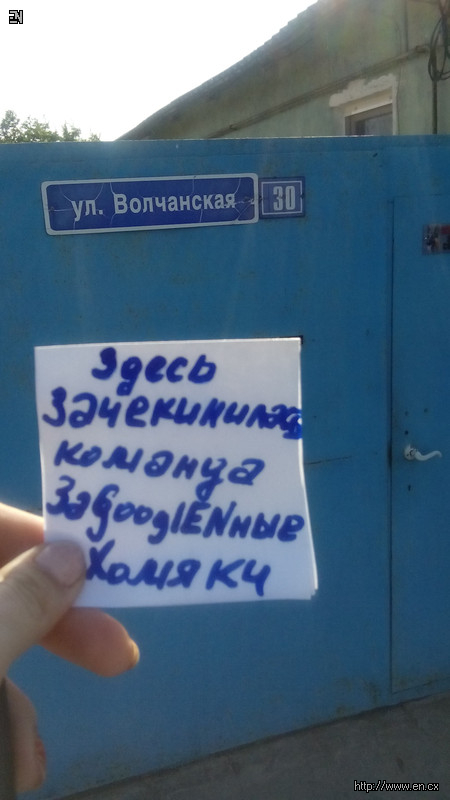 EN
ул. Волчанская 30
Здесь
Зачекинилась
команда
ЗаGooglENные
Хомяки
http://www.en.cx